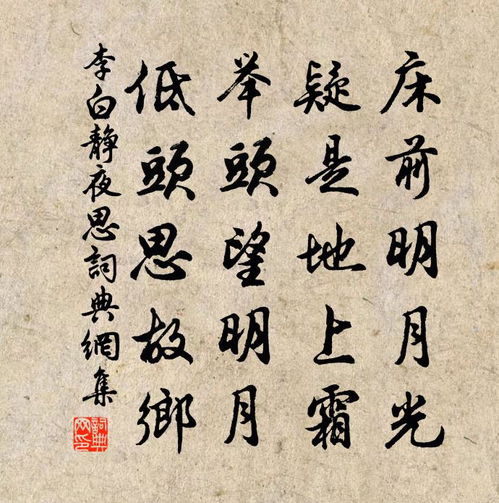 床前明月光
疑是地上霜
举头望明月
低頭思故鄉
李白静夜思詞典網集
詞典網印